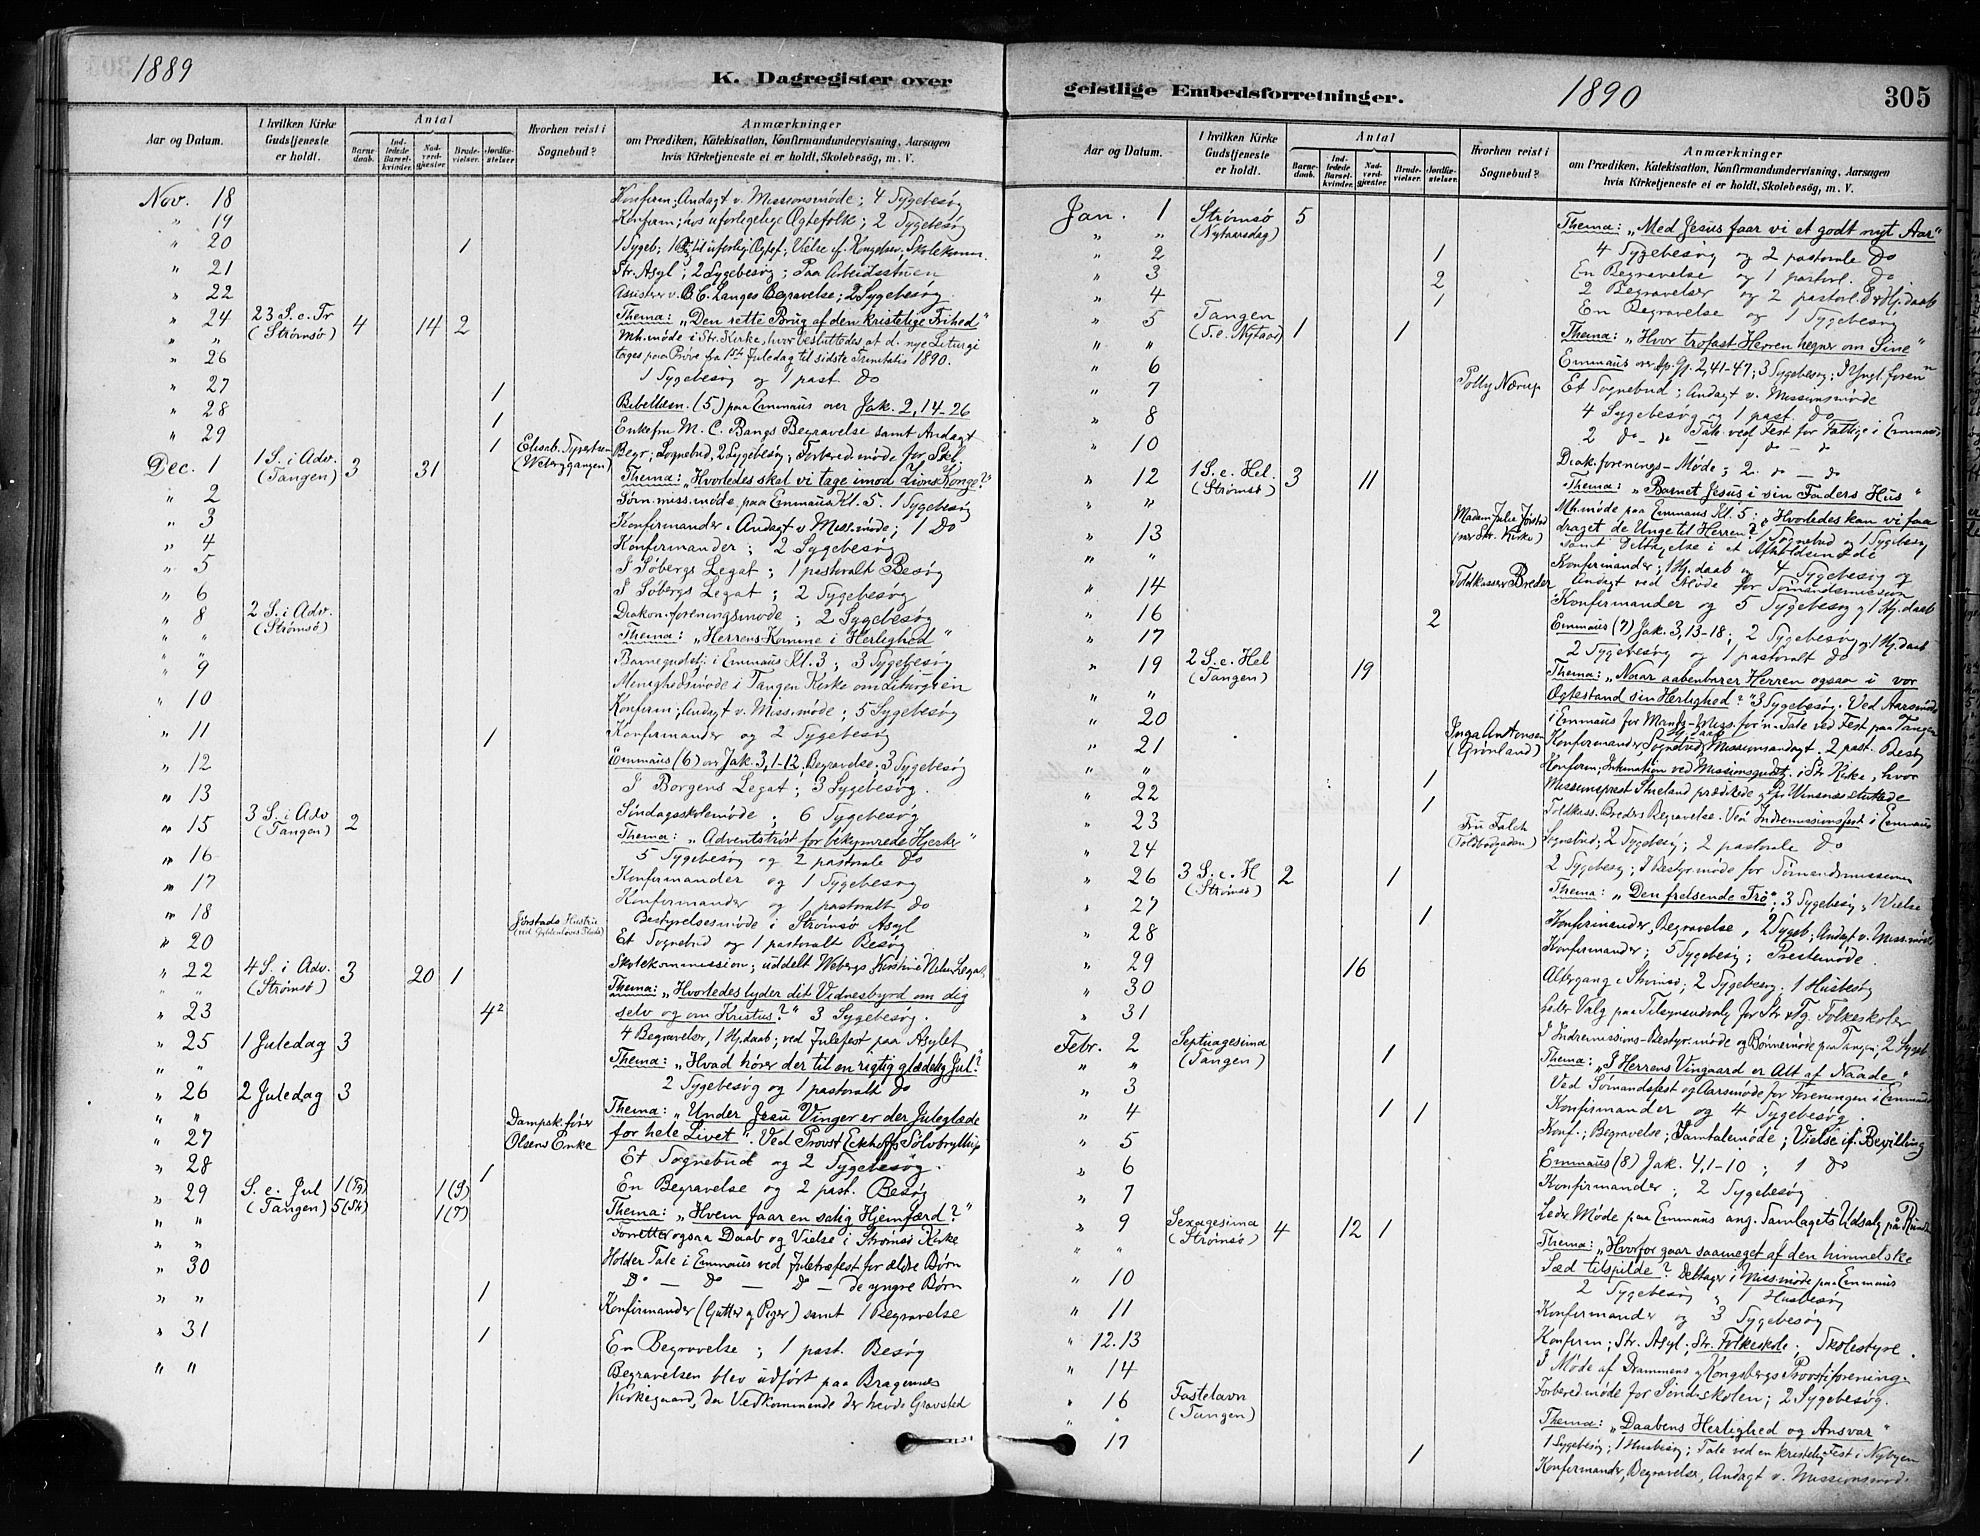 1889
K. Dagregister over
Aar og Datum.
I hvilken Kirke Gudstjeneste er holdt.
Antal
Barnedaab.
Indledede Barselkvinder.
Nadverdgjester
Brudevielser.
Jordfæstelser
Hvorhen reist i Sognebud?
Anmærkninger
om Prædiken, Katekisation, Konfirmandundervisning, Aarsagen
hvis Kirketjeneste ei er holdt, Skolebesøg, m. V.
Nov. 18 Konfirm; Andagt v. Missionsmøde; 4 Sygebesøg
" 19 Konfirm; hos uforligelige Ægtefolk; 2 Sygebesøg
" 20 1
" 21 Str. Asyl; 2 Sygebesøg; Paa Arbeidsstuen
" 22 Assisterer v. B. C. Langes Begravelse; 2 Sygebesøg
" 24 23 S. e. Tr (Strømsø) 4 14 2 Thema: "Den rette Brug af den kristelige Frihed"
" " Mh.møde i Str. Kirke, hvor besluttedes at d. nye Liturgi
tages paa Prøve fra 1ste Juledag til sidste Trinitatis 1890.
" 26 1 Sygebesøg og 1 past. do
" 27 1
" 28 1 Bibellæsn. (5) paa Emmaus over Jak. 2, 14-26
" 29 1 Enkefru M. C. Bangs Begravelse samt Andagt
Begr; Sognebud, 2 Sygebesøg; Forbered.møde for
Dec. 1 1 S. i Adv. (Tangen) 3 31 Thema: "Hvorledes skal vi tage imod Zions Konge?"
" 2 Sørn.miss.møde paa Emmaus Kl. 5. 1 Sygebesøg
" 3 Konfirmander. Andagt v Miss.møde; 1 Do
" 4 Konfirmander; 2 Sygebesøg
" 5 I Søbergs Legat; 1 pastoralt Besøg
" 6 I Søbergs Legat; 2 Sygebesøg
" 8 2 S. i Adv. (Strømsø) Diakon.foreningsmøde; 2 Sygebesøg
" " Thema: "Herrens Komme i Herlighed"
" " Barnegudstj. i Emmaus Kl. 3; 3 Sygebesøg
" 9 Menighedsmøde i Tangen Kirke om Liturgien
" 10 Konfirm; Andagt v. Miss.møde; 5 Sygebesøg
" 11 1 Konfirmander og 2 Sygebesøg
" 12 Emmaus (6) over Jak. 3, 1-12, Begravelse. 3 Sygebesøg
" 13 I Borgens Legat; 3 Sygebesøg.
Søndagsskolemøde; 6 Sygebesøg
" 15 3 S. i Adv (Tangen) 2 Thema: "Adventstrøst for bekymrede Hjerter"
" 16 5 Sygebesøg og 2 pastorale Do
" 17 Konfirmander og 1 Sygebesøg
" 18 Konfirmander og 1 pastoralt do
Jørstads Hustru Bestyrelsesmøde i Strømsø Asyl
" 20 Et Sognebud og 1 pastoralt Besøg
" 22 4 S. i Adv. (Strømsø) 3 20 1 Skolekommission; uddelt Webergs
" " Thema: "Hvorledes lyder dit Vidnesbyrd om dig
" 23 4² selv og om Kristus?" 3 Sygebesøg.
4 Begravelser, 1 Hj.daab; ved Julefest paa Asylet
" 25 1 Juledag 3 Thema: "Hvad hører der til en rigtig glædelig Jul?"
" " 2 Sygebesøg og 1 pastoralt Do
" 26 2 Juledag 3 Thema: "Under Jesu Vinger er der Juleglæde
" " for hele Livet". Ved Provst Eckhoffs Sølvbryllup
" 27 Dampsk.fører Olsens Enke Et Sognebud og 2 Sygebesøg.
" 28 1 En Begravelse og 2 past. Besøg
" 29 S. e. Jul (Tangen) 1 (Tg) 5 (Str) 1 (S) 1 (T) Thema: "Hvem faar en salig Hjemfærd?"
" " Forretter ogsaa Daab og Vielse i Strømsø Kirke
" " Holder Tale i Emmaus ved Juletræfest for ældre Børn
" 30 Do — Do — Do — de yngre Børn
" " 1 Konfirmander (Gutter og Piger) samt 1 Begravelse
" 31 1 En Begravelse; 1 past. Besøg
" " Begravelsen blev udført paa Bragernes
Kirkegaard, da Vedkommende der havde Gravsted
geistlige Embedsforretninger.
1890
305
Aar og Datum.
I hvilken Kirke Gudstjeneste er holdt.
Antal
Barnedaab.
Indledede Barselkvinder.
Nadverdgjester
Brudevielser.
Jordfæstelser.
Hvorhen reist i Sognebud?
Anmærkninger
om Prædiken, Katekisation, Konfirmandundervisning, Aarsagen
hvis Kirketjeneste ei er holdt, Skolebesøg, m. V.
Jan. 1 Strømsø (Nytaarsdag) 5 Thema: "Med Jesus faar vi et godt nyt Aar"
" " 4 Sygebesøg og 2 pastorale Do
" 2 1 En Begravelse og 1 pastorl. Do
" 3 2 2 Begravelser og 2 pastorl. Do Hj.daab
" 4 1 En Begravelse og 1 Sygebesøg
" 5 Tangen (S. e. Nytaar) 1 1 Thema: "Hvor trofast Herren hegner om Sine"
" " Emmaus over Ap. Gj. 2, 41-47; 3 Sygebesøg; I Yngl.foren
" 6 Polly Nærup Et Sognebud; Andagt v. Missionsmøde
" 7 4 Sygebesøg og 1 past. Do
" 8 2 do — do Tale ved Fest for Fattige i Emmaus
" 10 Diak.forenings-Møde; 2 do — do
" 12 1 S. e. Hel. (Strømsø) 3 11 Thema: "Barnet Jesus i sin Faders Hus"
" " Mh.møde paa Emmaus Kl. 5; "Hvorledes kan vi faa
" 13 Madam Julie Jørstad (nær Str. Kirke) draget de Unge til Herren?", Sognebud og 1 Sygebesøg
" " samt Deltagelse i et Afholdsmøde
Konfirmander; 1 Hj.daab og 4 Sygebesøg og
" 14 Toldkasserer Breder Andagt ved Møde for Sømandsmission
" 16 Konfirmander og 5 Sygebesøg og 1 Hj.daab
" 17 2 Emmaus (7) Jak. 3, 13-18; 2 Sygebesøg og 1 Hj.daab
2 Sygebesøg og 1 pastoralt Do
" 19 2 S. e. Hel (Tangen) 19 Thema: "Naar aabenbarer Herren ogsaa i vor
" " Ægtestand sin Herlighed?" 3 Sygebesøg. Ved Aarsmøde
" 20 i Emmaus for Mands-Miss.for'n. Tale ved Fest paa Tangen
" 21 Inga Antonsen (Grønland) Konfirmander, Sognebud, Missionsandagt. 2 past. Besøg
" " 1 Konfirm; Intimation ved Missionsgudstj. i Str Kirke, hvor
" 22 1 Missionsprest Stueland prædikede og Past Winsnes sluttede
" 23 Toldkass. Breders Begravelse. Ved Indremissionsfest i Emmaus
" 24 Fru Falch (Toldbodgaden) Sognebud; 2 Sygebesøg; 2 pastorale Do
2 Sygebesøg; I Bestyr.møde for Sømandsmissionen
" 26 3 S. e. H (Strømsø) 2 1 Thema: "Den frelsende Tro"; 3 Sygebesøg, 1 Vielse
" 27 1 Konfirmander, Begravelse, 2 Sygeb; Andagt v. Miss.møde
" 28 Konfirmander; 5 Sygebesøg; Prestemøde.
" 29 16 Altergang i Strømsø; 2 Sygebesøg; 1 Husbesøg
" 30 Leder Valg paa Tilsynsudvalg for Str & Tg. Folkeskoler
" 31 I Indremissions-Bestyr.møde og Børnemøde paa Tangen; 2 Sygeb.
Febr. 2 Septuagesima (Tangen) 1 Thema: "I Herrens Vingaard er Alt af Naade"
" " Ved Sømandsfest og Aarsmøde for Foreningen i Emmaus
" 3 Konfirmander og 4 Sygebesøg.
" 4 1 1 Konf.; Begravelse; Samtalemøde; Vielse if. Bevilling
" 5 Emmaus (8) Jak. 4, 1-10; 1 Do
" 6 Konfirmander; 2 Sygebesøg
" 7 Leder Møde paa Emmaus ang. Samlagets Udsalg på
" 9 Sexagesima (Strømsø) 4 12 1 Thema: "Hvorfor gaar saameget af den himmelske
" " Sæd tilspilde? Deltager i Miss.møde paa Emmaus
" 10 2 Sygebesøg, 1 Husbesøg
" 11 Konfirmander og 3 Sygebesøg
" 12.13 Konfirm; Str. Asyl; Str. Folkeskole; Skolestyre.
" 14 I Møde af Drammens og Kongsbergs Provstiforening.
Forbered.møde for Søndskolen; 2 Sygebesøg.
" 16 Fastelavn (Tangen) Thema: "Daabens Herlighed og Ansvar"
" " 1 Sygebesøg; 1 Husbesøg; Tale ved en kristelig Fest i Nybyen
" 17 1 Konfirmander, Begravelse, Andagt v. Missionsmøde